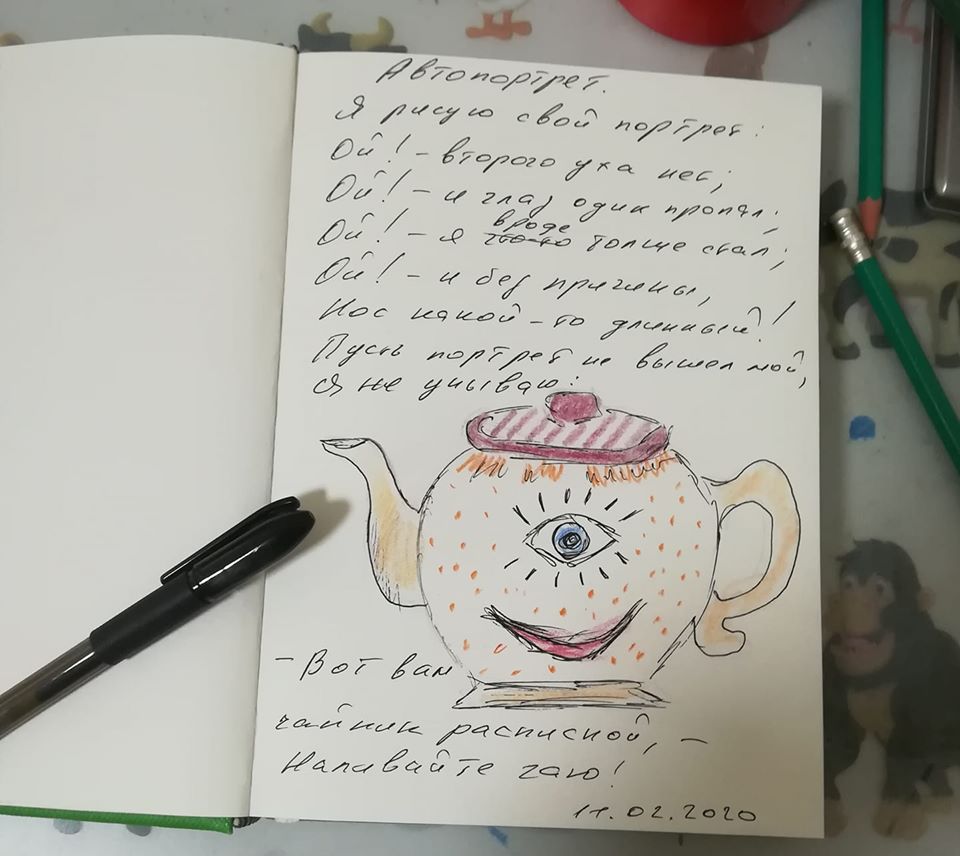 Автопортрет.
Я рисую свой портрет:
Ой! - второго уха нет;
Ой! - и глаз один пропал;
Ой! - я вроде толще стал;
Ой! - и без причины,
Нос какой-то длинный!
Пусть портрет не вышел мой,
Я не унываю:
- Вот вам
чайник расписной, -
Наливайте чаю!
11.02.2020